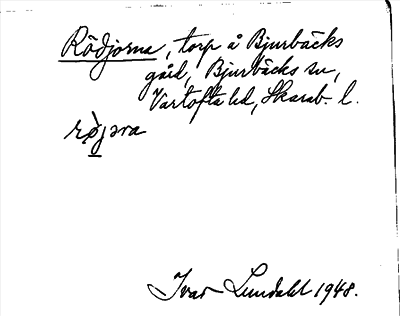 Rödjorna, torp å Bjurbäcks
gård, Bjurbäcks sn,
Vartofta hd, Skarab. l.
rø̀jəra
Ivar Lundahl 1948.